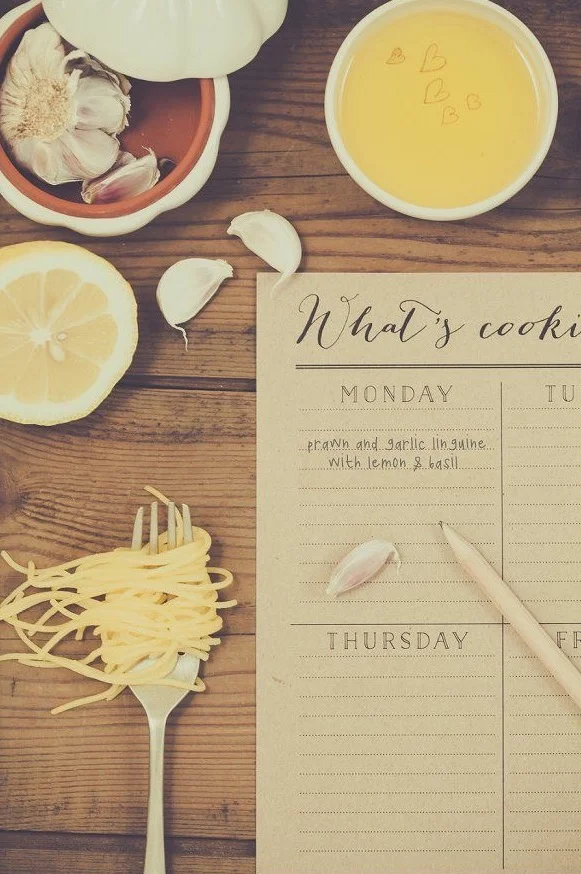 What's cooki
MONDAY
TU
prawn and garlic linguine
with lemon & basil
THURSDAY
FR